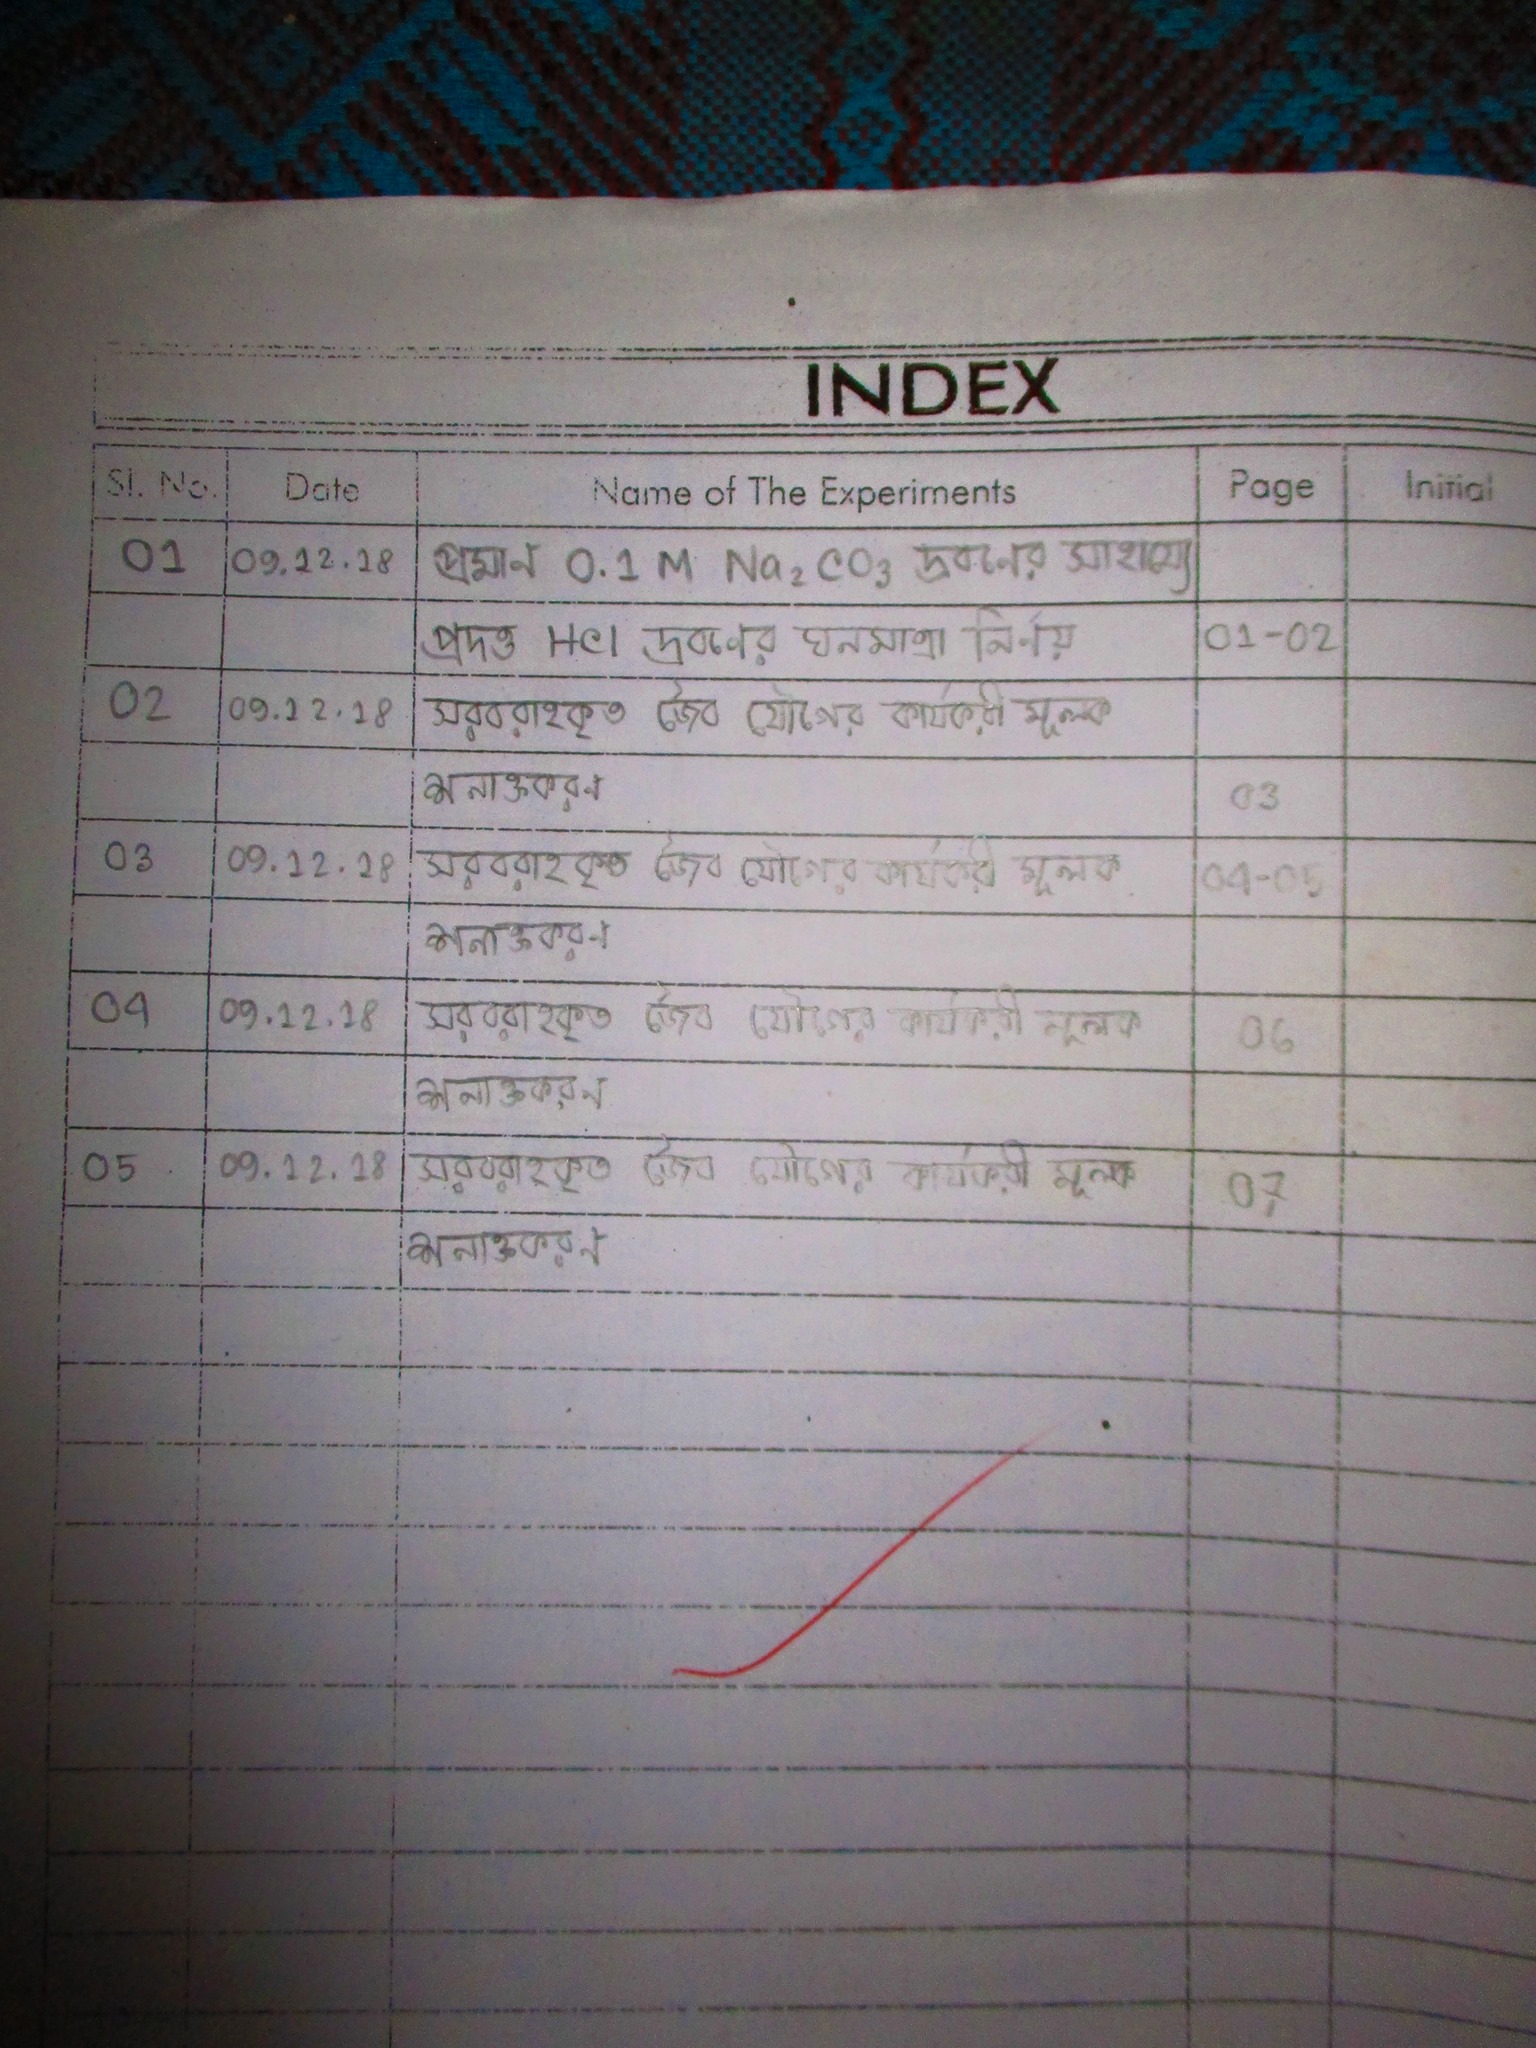 INDEX
Sl. No. Date Name of The Experiments Page Initial
01 09.12.18 প্রমান 0.1 M Na₂CO₃ দ্রবণের সাহায্যে
প্রদত্ত HCl দ্রবণের ঘনমাত্রা নির্ণয় 01-02
02 09.12.18 সরবরাহকৃত জৈব যৌগের কার্যকরী মূলক
শনাক্তকরণ 03
03 09.12.18 সরবরাহকৃত জৈব যৌগের কার্যকরী মূলক 04-05
শনাক্তকরণ
04 09.12.18 সরবরাহকৃত জৈব যৌগের কার্যকরী মূলক 06
শনাক্তকরণ
05 09.12.18 সরবরাহকৃত জৈব যৌগের কার্যকরী মূলক 07
শনাক্তকরণ